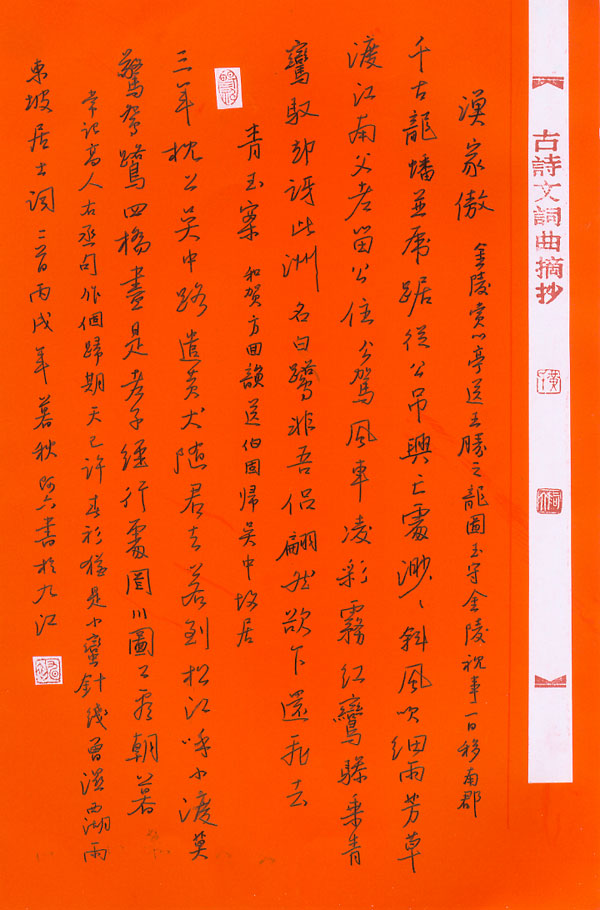 古詩文詞曲摘抄
漁家傲 金陵賞心亭送王勝之龍圖王守金陵視事一日移南郡
千古龍蟠並虎踞從公吊興亡處渺〻斜風吹細雨芳草
渡江南父老留公住公駕風車凌彩霧紅鸞驂乘青
鸞馭却訝此洲名白鷺非吾侶翩然欲下還飛去
青玉案 和賀方回韻送伯固歸吳中故居
三年枕上吳中路遣黃犬隨君去若到松江呼小渡莫
驚鴛鷺四橋盡是老子經行處罔川圖上看朝暮
常記高人右丞句作個歸期天已許春衫猶是小蠻針綫曾濕西湖雨
東坡居士詞二首丙戌年暮秋阿六書於九江